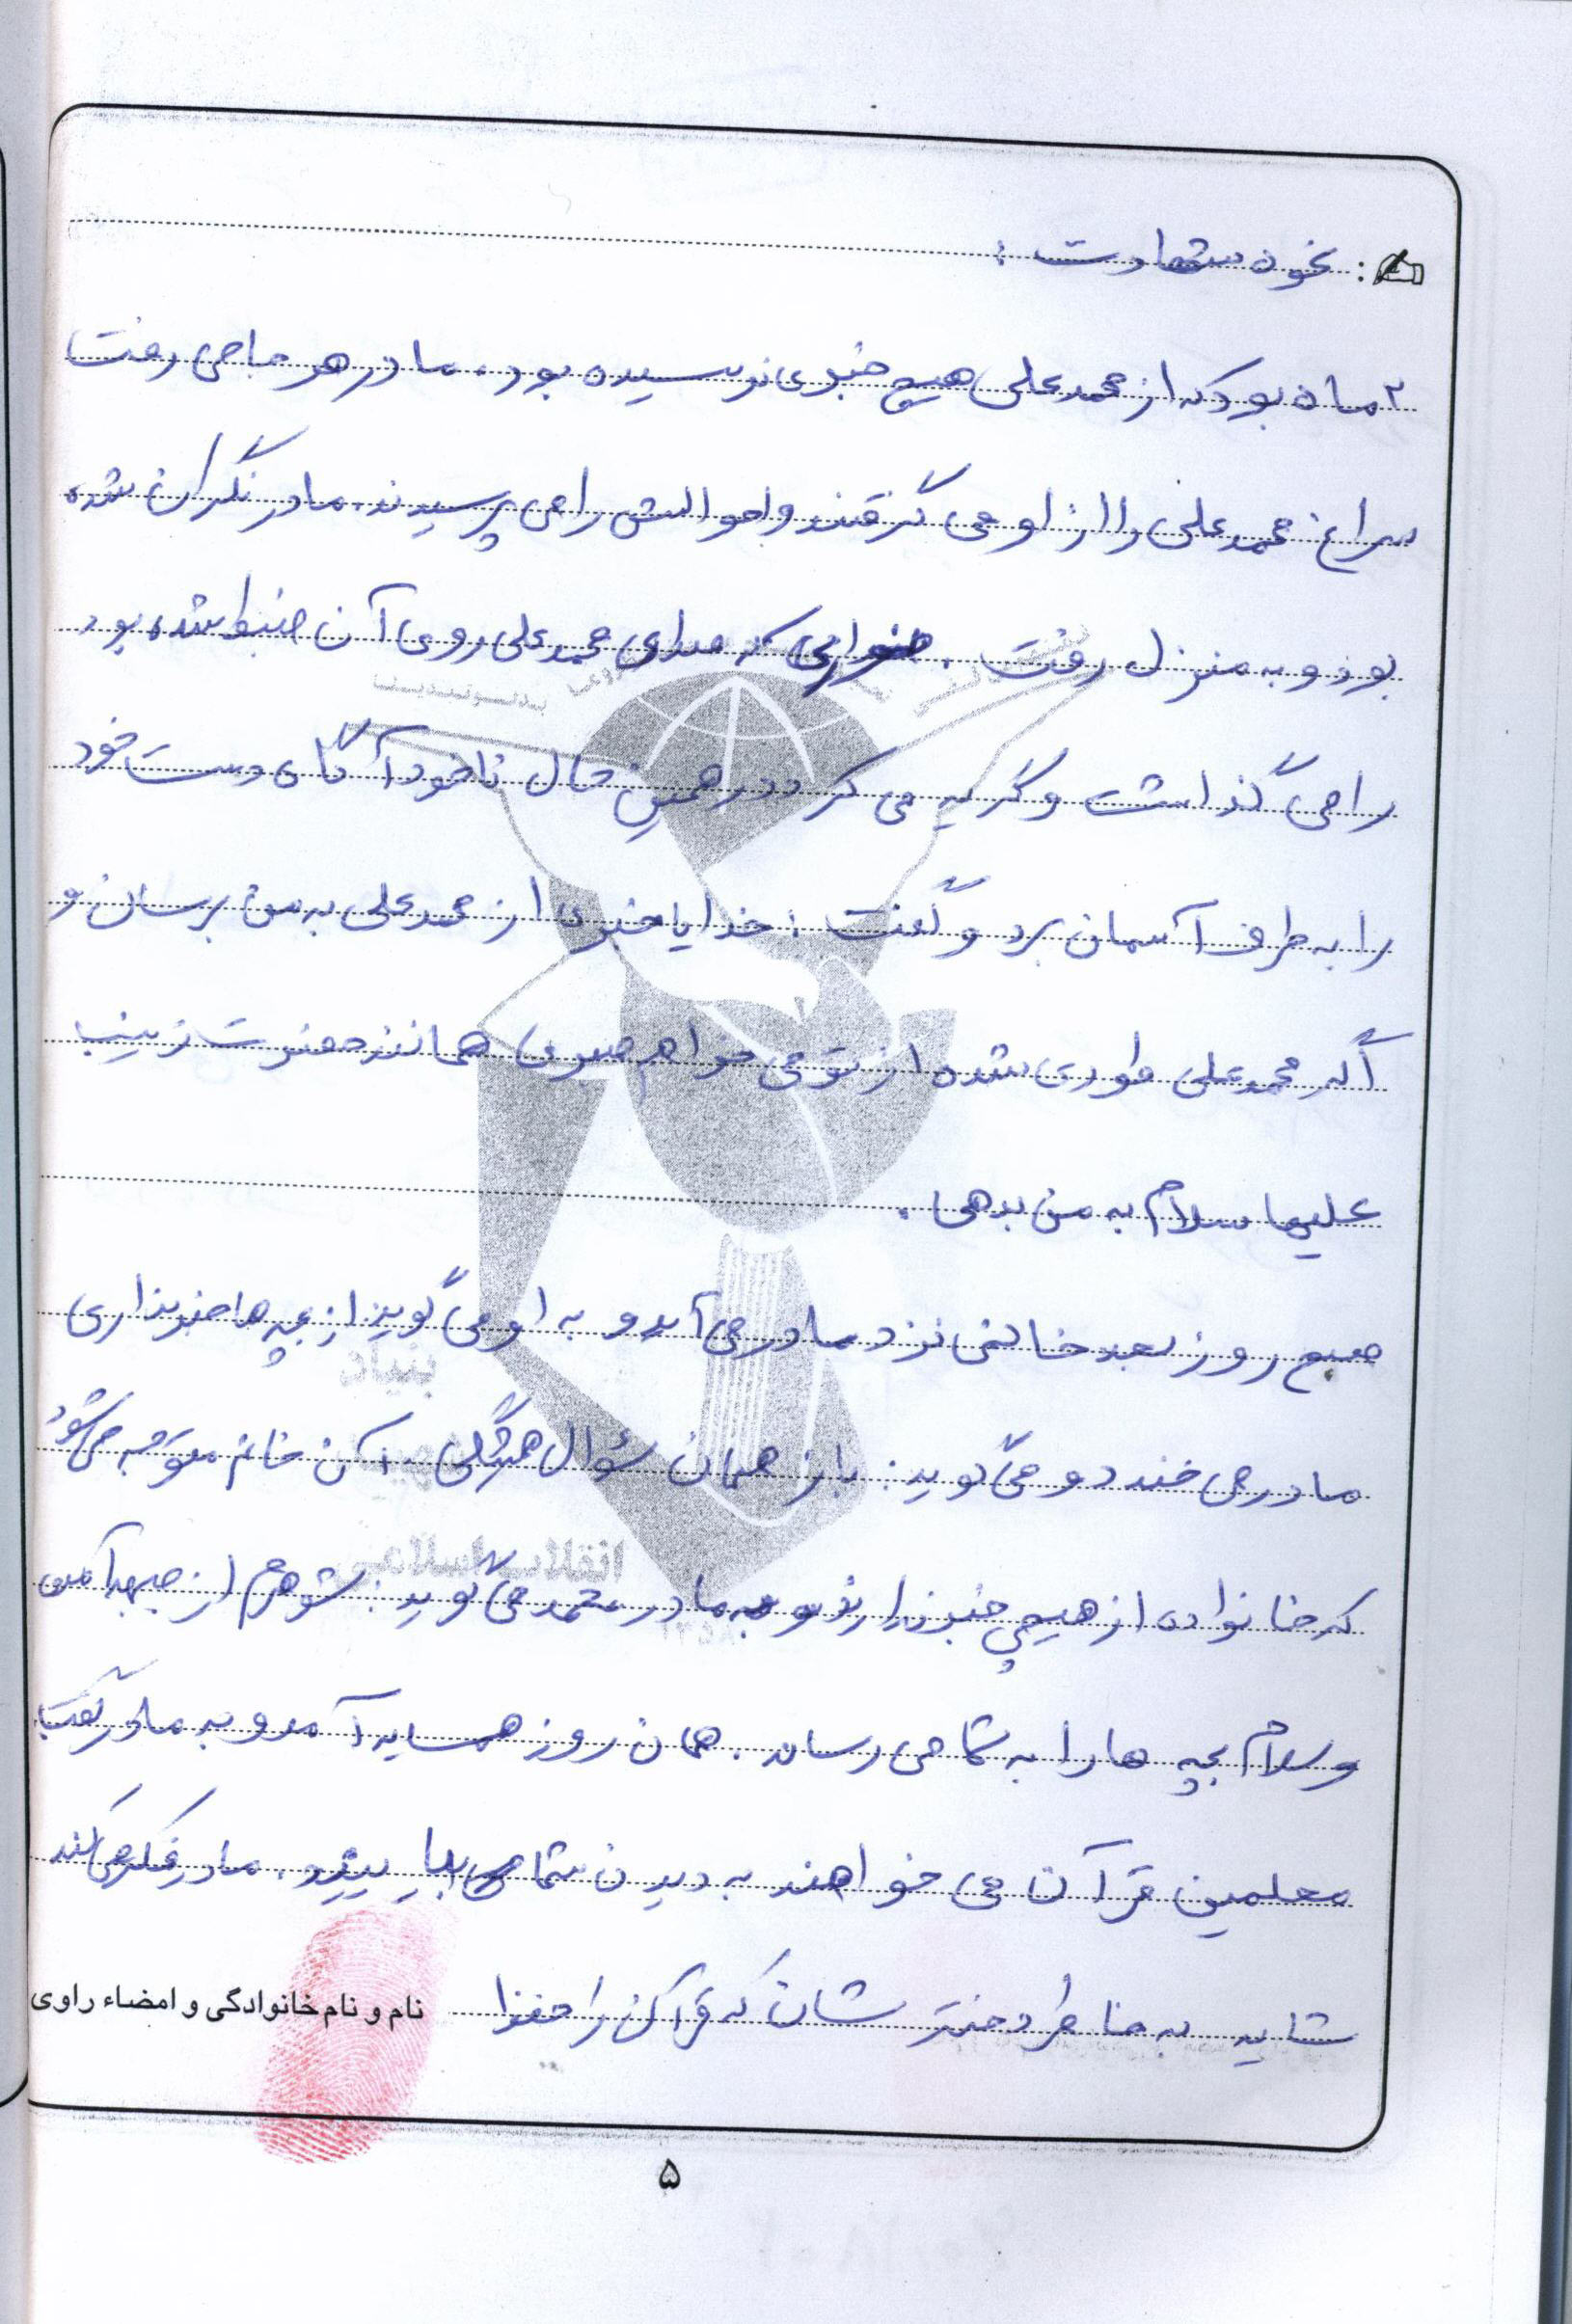 نحوه شهادت :
۲ ماه بود که از محمدعلی هیچ خبری نرسیده بود. مادر هر جا می رفت
سراغ محمدعلی را از او می گرفتند و احوالش را می پرسیدند. مادر نگران شده
بود و به منزل رفت . که صدای محمدعلی روی آن ضبط شده بود
را می گذاشت و گریه می کرد در همین حال ناخودآگاه دست خود
را به طرف آسمان برد و گفت : خدایا خبری از محمدعلی به من برسان و
اگر محمدعلی طوری شده از تو می خواهم صبری همانند حضرت زینب
علیها سلام به من بدهی .
صبح روز بعد خانمی نزد مادر می آید و به او می گوید از بچه ها خبر نداری
مادر می خندد و می گوید : باز همان سؤال همیشگی . آن خانم متوجه می شود
که خانواده از هیچی خبر ندارند و به مادر محمد می گوید : شوهرم از جبهه آمده
و سلام بچه ها را به شما می رساند . همان روز همسایه آمد و به مادر گفت
معلمین قرآن می خواهند به دیدن شما بیایند . مادر فکر می کند
شاید به خاطر دخترشان که قرآن را حفظ
نام و نام خانوادگی و امضاء راوی
بنیاد
انقلاب اسلامی
۵